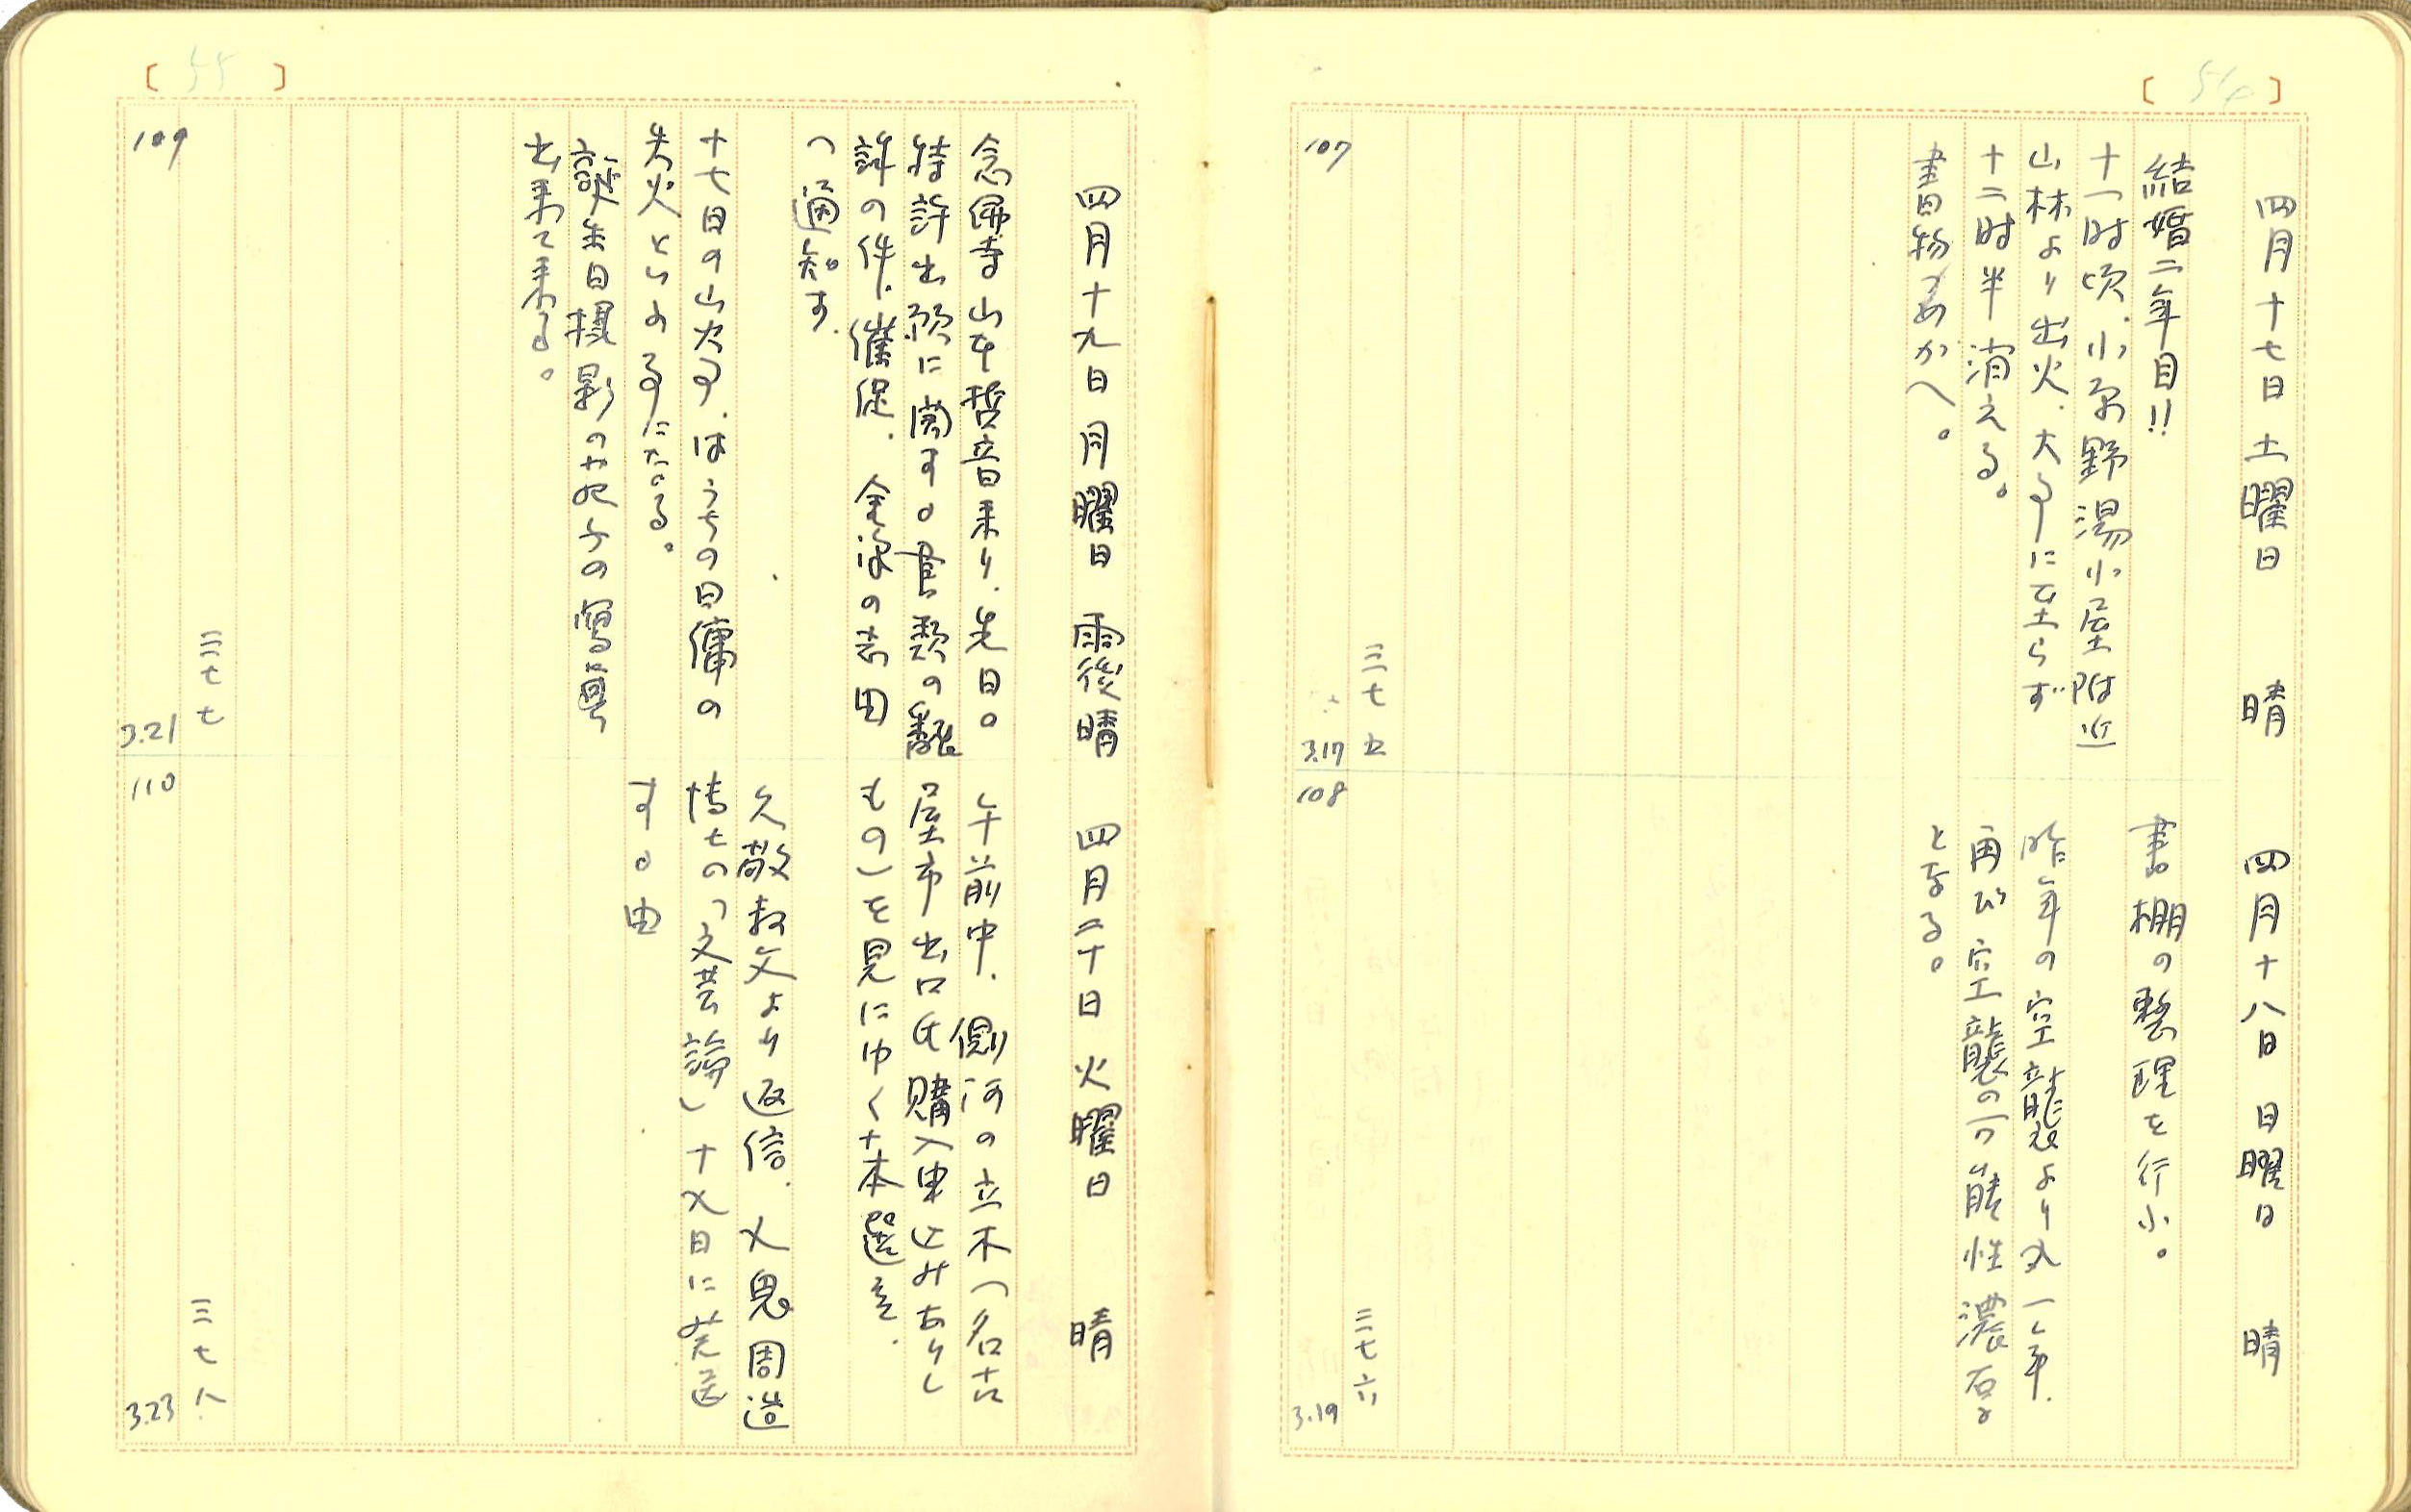 [ 54 ]
四月十七日 土曜日 晴
結婚二年目!!
十一時頃、小原野湯小屋附近
山林より出火、大事に至らず
十二時半消える。
書物つめかへ。
三七五
107
3.17
四月十八日 日曜日 晴
書棚の整理を行ふ。
昨年の空襲より丸一年、
再び空襲の可能性濃厚
となる。
三七六
108
3.19
[ 55 ]
四月十九日 月曜日 雨後晴
念佛寺山本哲音来り、先日の
特許出願に関する書類の飜
訳の件、催促、全部の訳由
つ通知す、
十七日の山火事、はうちの日傭の
失火といふ事になる。
誕生日撮影の
出来て来る。
三七七
109
3.21
四月二十日 火曜日 晴
午前中、側河の立木(名古
屋市出口氏購入申込みありし
もの)を見にゆく十本選定、
久敬叔父より返信、九鬼周造
博士の「文芸論」十九日に発送
する由
三七八
110
3.23